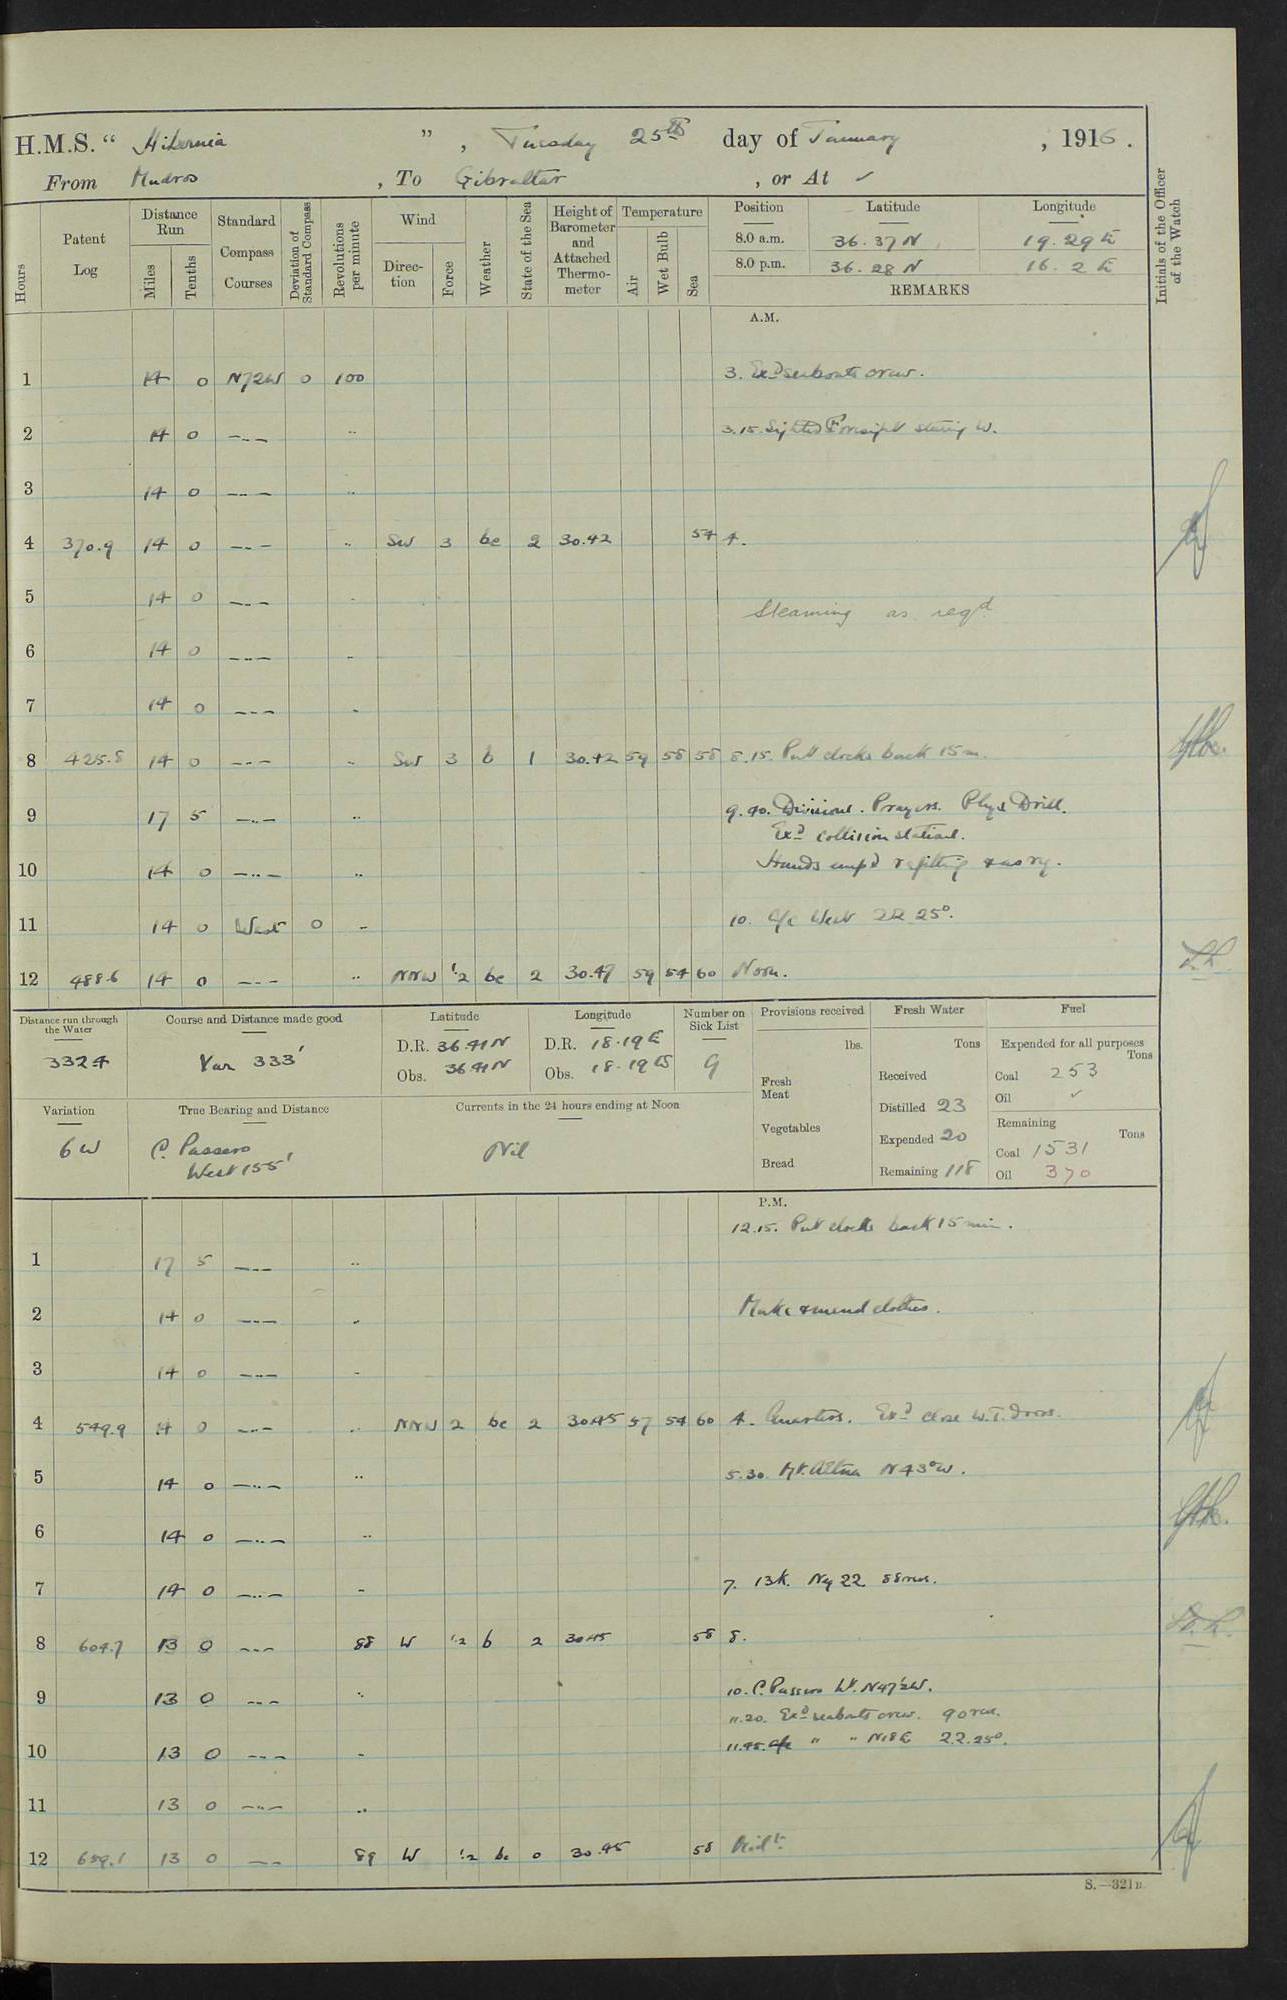 H.M.S. “ Hibernia ” , Tuesday 25th day of January , 1916 .
From Mudros , To Gibraltar , or At ✓
Hours
Patent Log
Distance Run
Miles
Tenths
Standard Compass Courses
Deviation of Standard Compass
Revolutions per minute
Wind
Direction
Force
Weather
State of the Sea
Height of Barometer and Attached Thermometer
Temperature
Air
Wet Bulb
Sea
Position Latitude Longitude
8.0 a.m. 36.37 N 19.29 E
8.0 p.m. 36.28 N 16.2 E
REMARKS
Initials of the Officer of the Watch
A.M.
1 14 0 N72W 0 100 3. Exd seaboats crew.
2 14 0 —..— .. 3.15. Sighted Foresight steering W.
3 14 0 —..— ..
4 370.9 14 0 —..— .. SW 3 bc 2 30.42 54 4.
5 14 0 —..— ..
Steaming as reqd
6 14 0 —..— ..
7 14 0 —..— ..
8 425.8 14 0 —..— .. SW 3 b 1 30.42 59 58 58 8.15. Put clocks back 15 m.
9 17 5 —..— .. 9.40. Divisions. Prayers. Phys Drill.
Exd collision stations.
10 14 0 —..— .. Hands empd refitting & as ry.
11 14 0 West 0 .. 10. A/c West 25°.
12 488.6 14 0 —..— .. NNW 1/2 bc 2 30.47 59 54 60 Noon.
Distance run through the Water
332.4
Course and Distance made good
Var 333'
Latitude
D.R. 36.41 N
Obs. 36.41 N
Longitude
D.R. 18.19 E
Obs. 18.19 E
Number on Sick List
9
Provisions received
lbs.
Fresh Meat
Vegetables
Bread
Fresh Water
Tons
Received
Distilled 23
Expended 20
Remaining 118
Fuel
Expended for all purposes
Tons
Coal 253
Oil ✓
Remaining
Tons
Coal 1531
Oil 370
Variation
6 W
True Bearing and Distance
C. Passero
West 155'
Currents in the 24 hours ending at Noon
Nil
P.M.
12.15. Put clocks back 15 min.
1 17 5 —..— ..
2 14 0 —..— .. Make & mend clothes.
3 14 0 —..— ..
4 549.9 14 0 —..— .. NNW 2 bc 2 30.45 57 54 60 4. Quarters. Exd close W.T. doors.
5 14 0 —..— .. 5.30. Mt. Aetna N43°W.
6 14 0 —..— ..
7 14 0 —..— .. 7. 13 K. 88 revs.
8 604.7 13 0 —..— 88 W 1.2 b 2 30.45 58 8.
9 13 0 —..— .. 10. C. Passero Lt. N47½W.
11.20. Exd seaboats crew. 90 revs.
10 13 0 —..— .. 11.45. " " N18E 22.25°.
11 13 0 —..— ..
12 659.1 13 0 —..— 89 W 1.2 bc 0 30.45 58 Midt.
S.—321B.